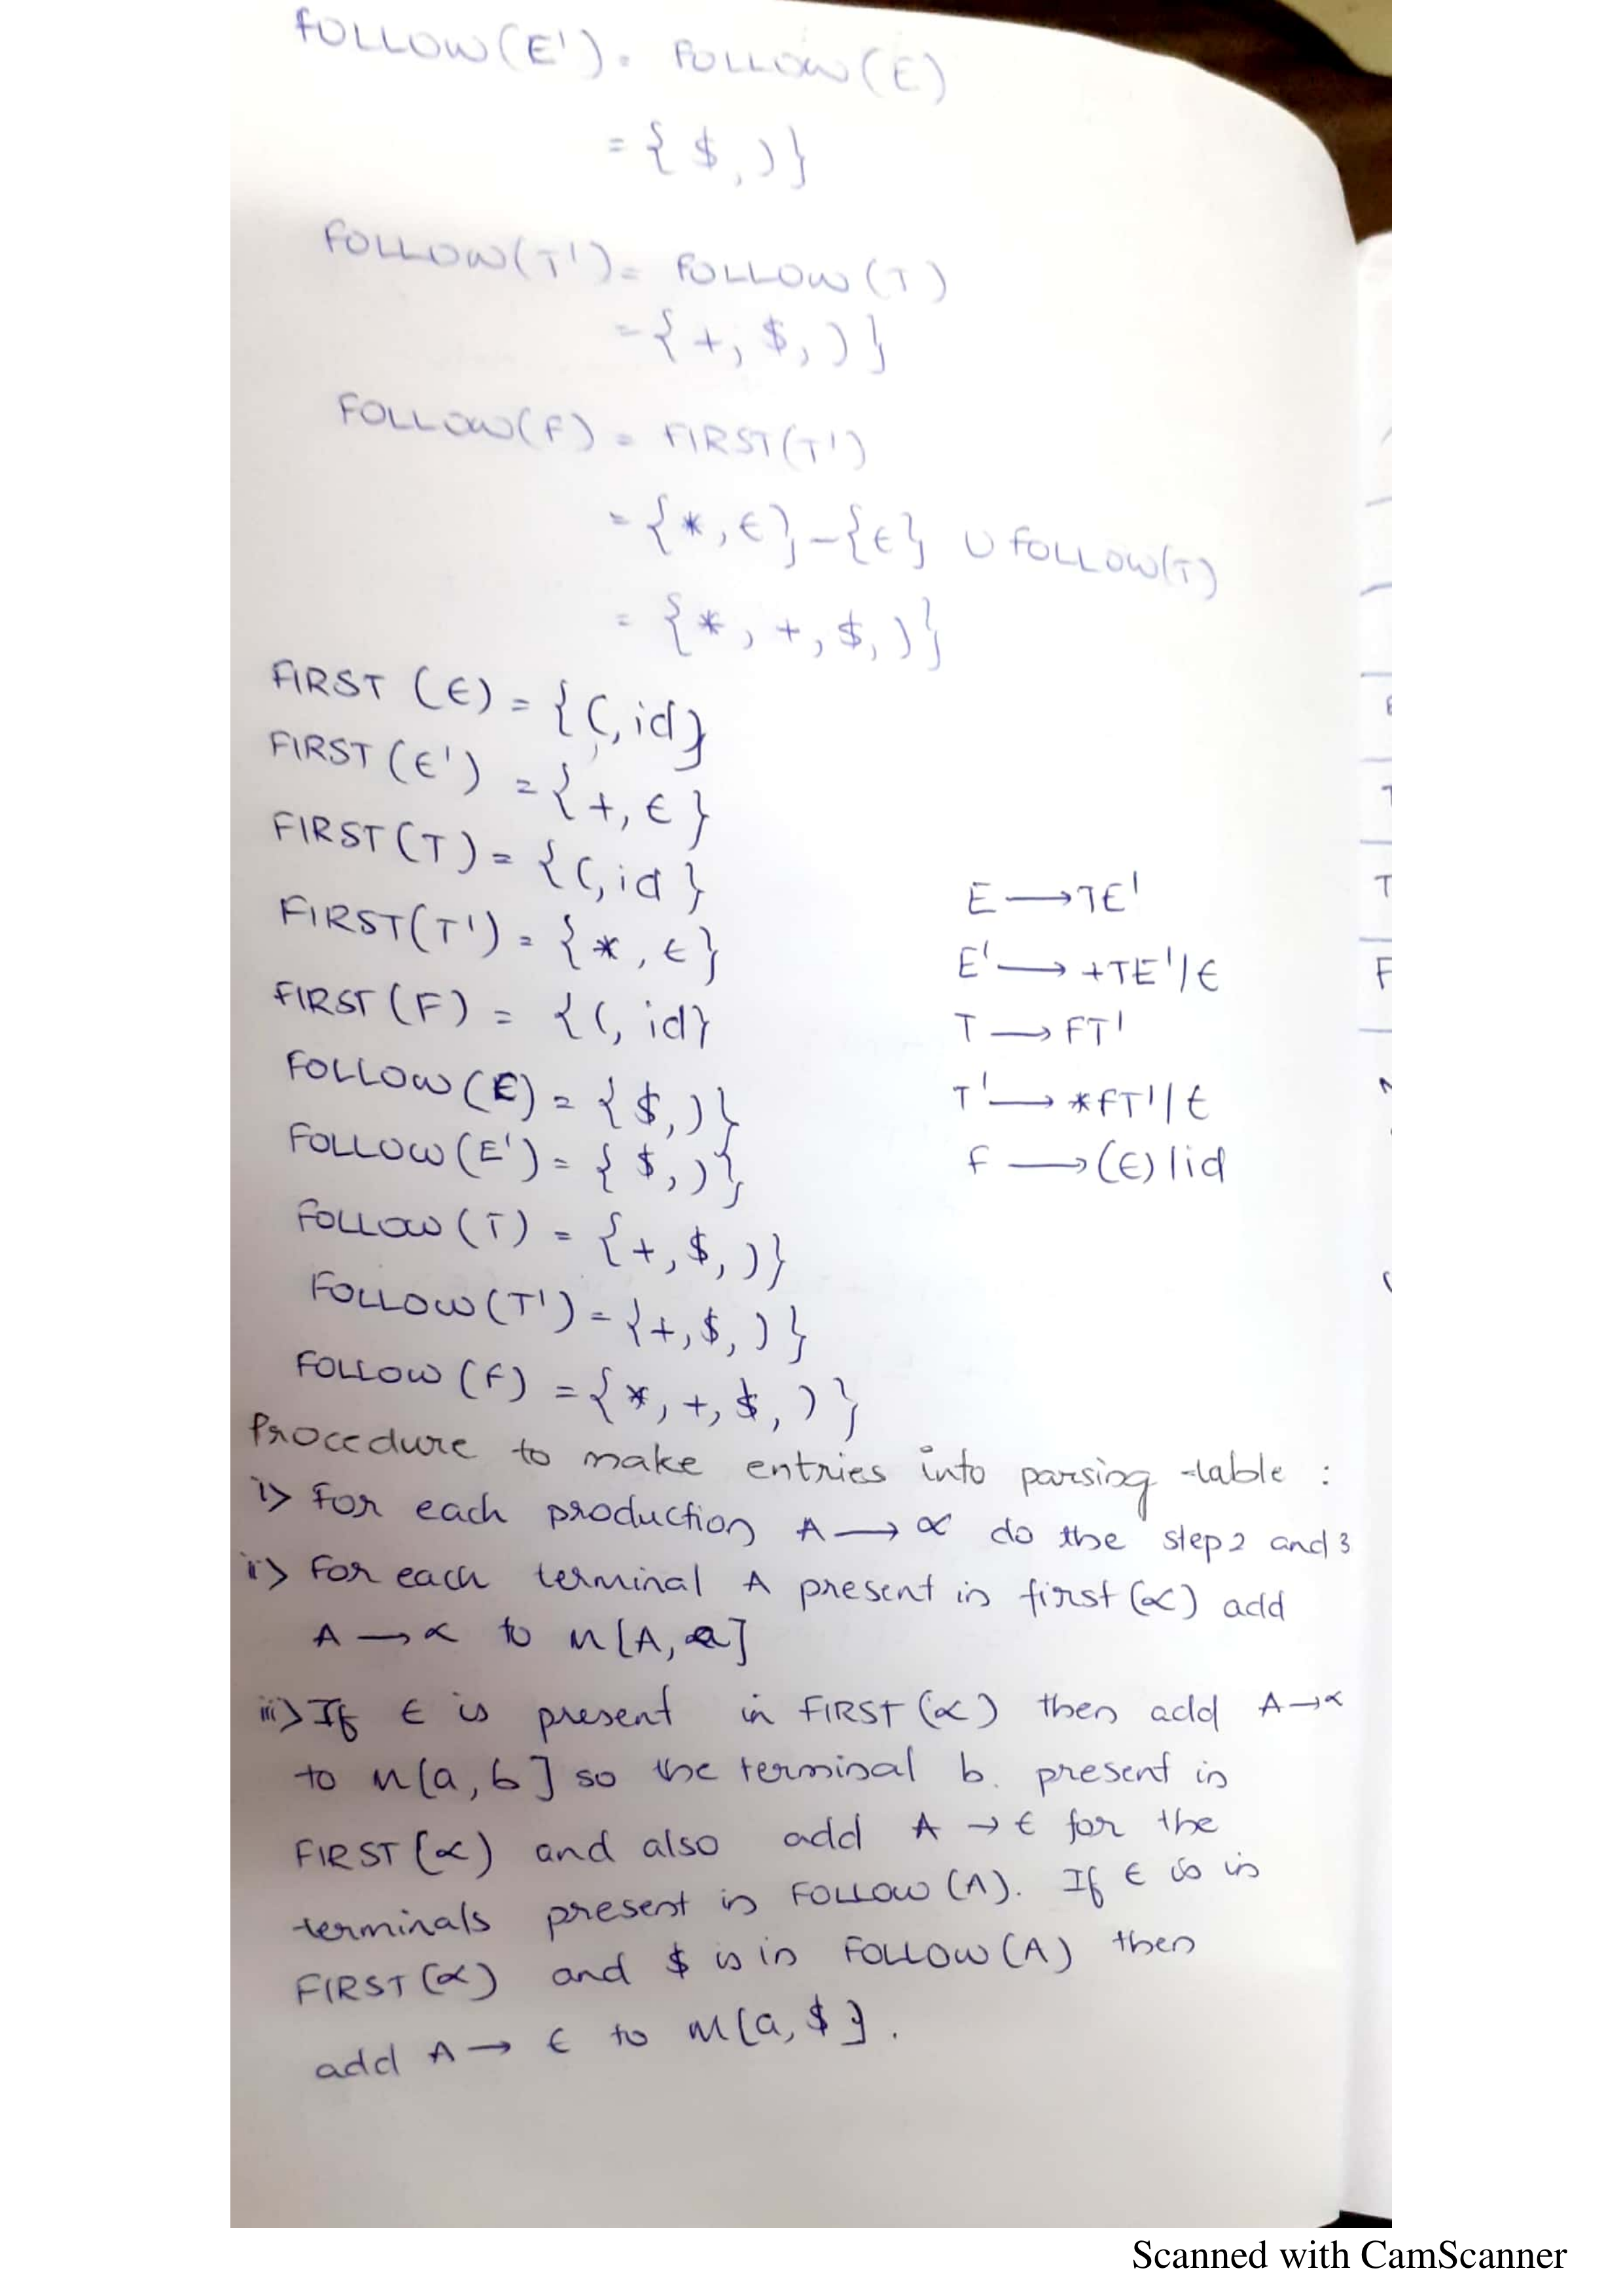 FOLLOW(E') = FOLLOW(E)
= { $, ) }
FOLLOW(T') = FOLLOW(T)
= { +, $, ) }
FOLLOW(F) = FIRST(T')
= { *, ϵ } - { ϵ } ∪ FOLLOW(T)
= { *, +, $, ) }
FIRST (E) = { (, id }
FIRST (E') = { +, ϵ }
FIRST (T) = { (, id }
FIRST(T') = { *, ϵ }
FIRST (F) = { (, id }
FOLLOW (E) = { $, ) }
FOLLOW (E') = { $, ) }
FOLLOW (T) = { +, $, ) }
FOLLOW (T') = { +, $, ) }
FOLLOW (F) = { *, +, $, ) }
E → TE'
E' → +TE'/ϵ
T → FT'
T' → *FT'/ϵ
F → (E) | id
Procedure to make entries into parsing table :
i> For each production A → ∝ do the step 2 and 3
ii> For each terminal A present in first (∝) add
A → ∝ to M[A, a]
iii> If ϵ is present in FIRST (∝) then add A → ∝
to M[a, b] so the terminal b. present in
FIRST (∝) and also add A → ϵ for the
terminals present in FOLLOW (A). If ϵ is in
FIRST (∝) and $ is in FOLLOW (A) then
add A → ϵ to M[a, $].
Scanned with CamScanner